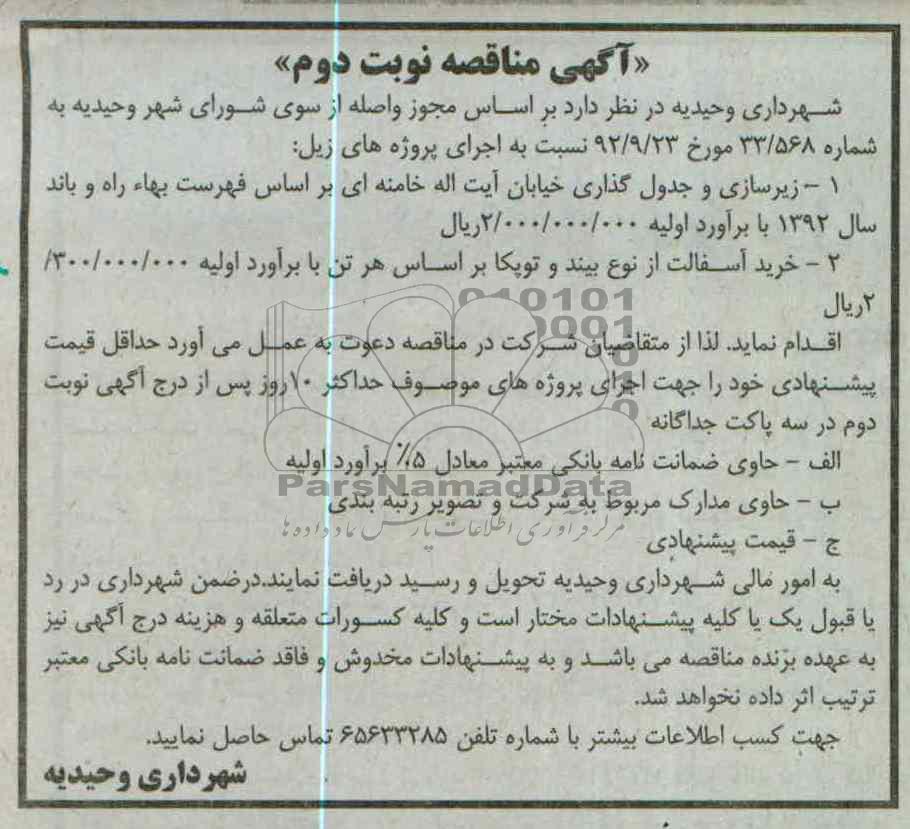 «آگهی مناقصه نوبت دوم»
شهرداری وحیدیه در نظر دارد بر اساس مجوز واصله از سوی شورای شهر وحیدیه به
شماره ۳۳/۵۶۸ مورخ ۹۲/۹/۲۳ نسبت به اجرای پروژه های زیل:
۱ – زیرسازی و جدول گذاری خیابان آیت اله خامنه ای بر اساس فهرست بهاء راه و باند
سال ۱۳۹۲ با برآورد اولیه ۲/۰۰۰/۰۰۰/۰۰۰ریال
۲ – خرید آسفالت از نوع بیند و توپکا بر اساس هر تن با برآورد اولیه ۳۰۰/۰۰۰/۰۰۰/
۲ریال
اقدام نماید. لذا از متقاضیان شرکت در مناقصه دعوت به عمل می آورد حداقل قیمت
پیشنهادی خود را جهت اجرای پروژه های موصوف حداکثر ۱۰روز پس از درج آگهی نوبت
دوم در سه پاکت جداگانه
الف – حاوی ضمانت نامه بانکی معتبر معادل ۵٪ برآورد اولیه
ParsNamadData
ب – حاوی مدارک مربوط به شرکت و تصویر رتبه بندی
مرکز فرآوری اطلاعات پارس نماد داده ها
ج – قیمت پیشنهادی
به امور مالی شهرداری وحیدیه تحویل و رسید دریافت نمایند.درضمن شهرداری در رد
یا قبول یک یا کلیه پیشنهادات مختار است و کلیه کسورات متعلقه و هزینه درج آگهی نیز
به عهده برنده مناقصه می باشد و به پیشنهادات مخدوش و فاقد ضمانت نامه بانکی معتبر
ترتیب اثر داده نخواهد شد.
جهت کسب اطلاعات بیشتر با شماره تلفن ۶۵۶۳۳۲۸۵ تماس حاصل نمایید.
شهرداری وحیدیه